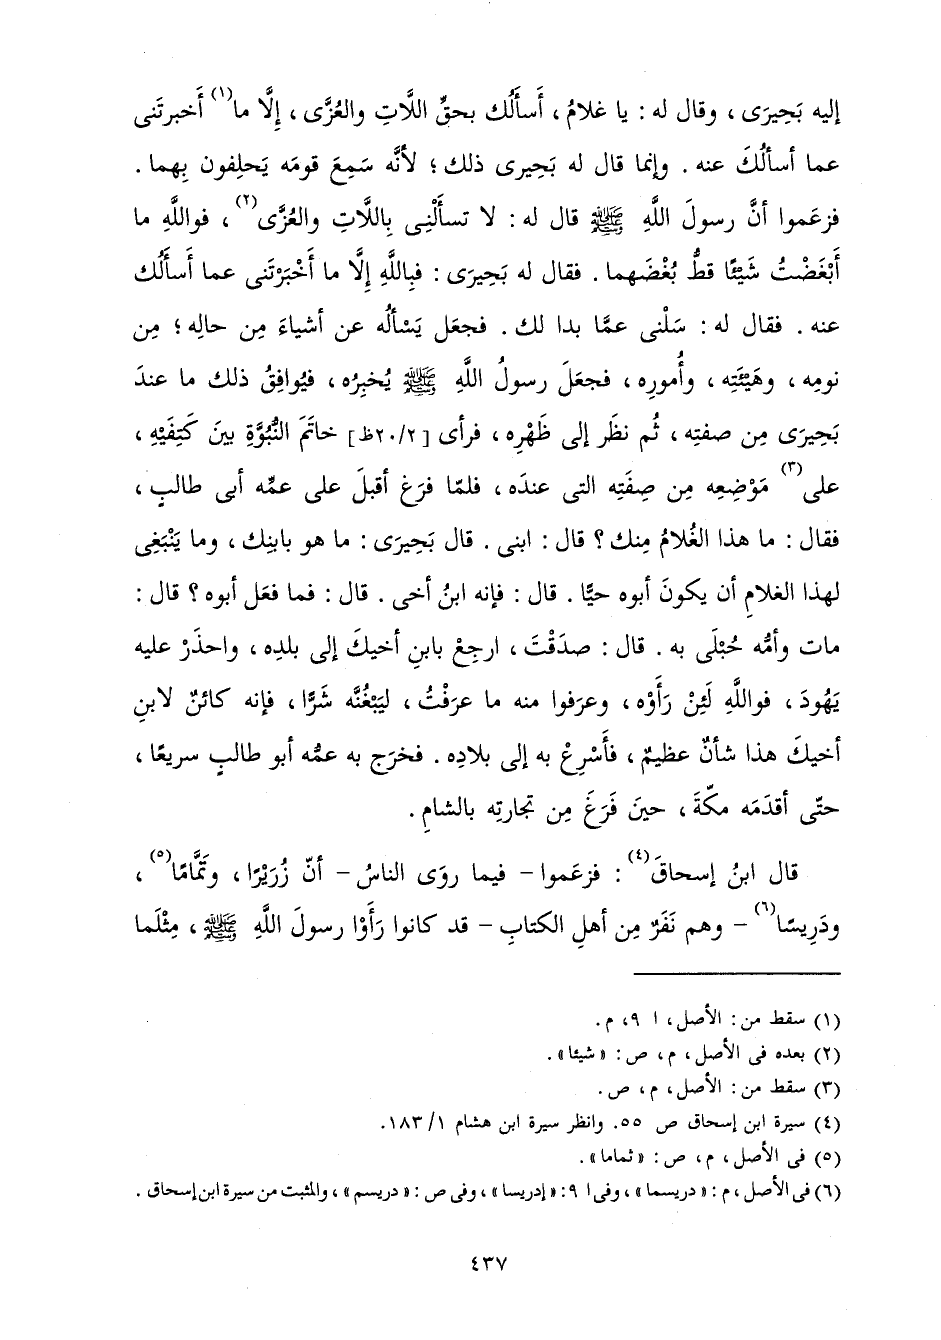 إليه بَحِيرَى ، وقال له : يا غلامُ ، أَسأَلُك بحقِّ اللَّاتِ والعُزَّى ، إِلَّا ما(١) أَخبرتَنى
عما أسألُكَ عنه . وإنما قال له بَحِيرى ذلك ؛ لأنَّه سَمِعَ قومَه يَحلِفون بِهما .
فزعَموا أنَّ رسولَ اللَّهِ ﷺ قال له : لا تسأَلْنِى بِاللَّاتِ والعُزَّى(٢) ، فواللَّهِ ما
أَبْغَضْتُ شَيْئًا قطُّ بُغْضَهما . فقال له بَحِيرَى : فبِاللَّهِ إِلَّا ما أَخْبَرْتَنى عما أَسأَلُك
عنه . فقال له : سَلْنى عمَّا بدا لك . فجعَل يَسْألُه عن أشياءَ مِن حالِه ؛ مِن
نومِه ، وهَيْئَتِه ، وأُمورِه ، فجعَلَ رسولُ اللَّهِ ﷺ يُخبِرُه ، فيُوافِقُ ذلك ما عندَ
بَحِيرَى مِن صفتِه ، ثُم نظَر إلى ظَهْرِه ، فرأى [٢٠/٢ظ] خاتَمَ النُّبُوَّةِ بينَ كَتِفَيْهِ ،
على(٣) مَوْضِعِه مِن صِفَتِه التى عندَه ، فلمَّا فرَغ أقبلَ على عمِّه أبى طالبٍ ،
فقال : ما هذا الغُلامُ مِنك ؟ قال : ابنى . قال بَحِيرَى : ما هو بابنِك ، وما يَنْبَغِى
لهذا الغلامِ أن يكونَ أبوه حيًّا . قال : فإنه ابنُ أخى . قال : فما فعَل أبوه ؟ قال :
مات وأمُّه حُبْلَى به . قال : صدَقْتَ ، ارجِعْ بابنِ أخيكَ إلى بلدِه ، واحذَرْ عليه
يَهُودَ ، فواللَّهِ لَئِنْ رَأَوْه ، وعرَفوا منه ما عرَفْتُ ، ليَبْغُنَّه شَرًّا ، فإنه كائنٌ لابنِ
أخيكَ هذا شأنٌ عظيمٌ ، فأَسْرِعْ به إلى بلادِه . فخرَج به عمُّه أبو طالبٍ سريعًا ،
حتّى أقدَمَه مكّةَ ، حينَ فَرَغَ مِن تجارتِه بالشامِ .
قال ابنُ إسحاقَ(٤) : فزعَموا – فيما روَى الناسُ – أنّ زُرَيْرًا ، وتَمَّامًا(٥) ،
ودَرِيسًا(٦) – وهم نَفَرٌ مِن أهلِ الكتابِ – قد كانوا رَأَوْا رسولَ اللَّهِ ﷺ ، مِثْلَما
(١) سقط من : الأصل ، ا ٩ ، م .
(٢) بعده فى الأصل ، م ، ص : « شيئا » .
(٣) سقط من : الأصل ، م ، ص .
(٤) سيرة ابن إسحاق ص ٥٥. وانظر سيرة ابن هشام ١/ ١٨٣.
(٥) فى الأصل ، م ، ص : « ثماما » .
(٦) فى الأصل ، م : « دريسما » ، وفى ا ٩: « إدريسا » ، وفى ص : « دريسم » ، والمثبت من سيرة ابن إسحاق .
٤٣٧